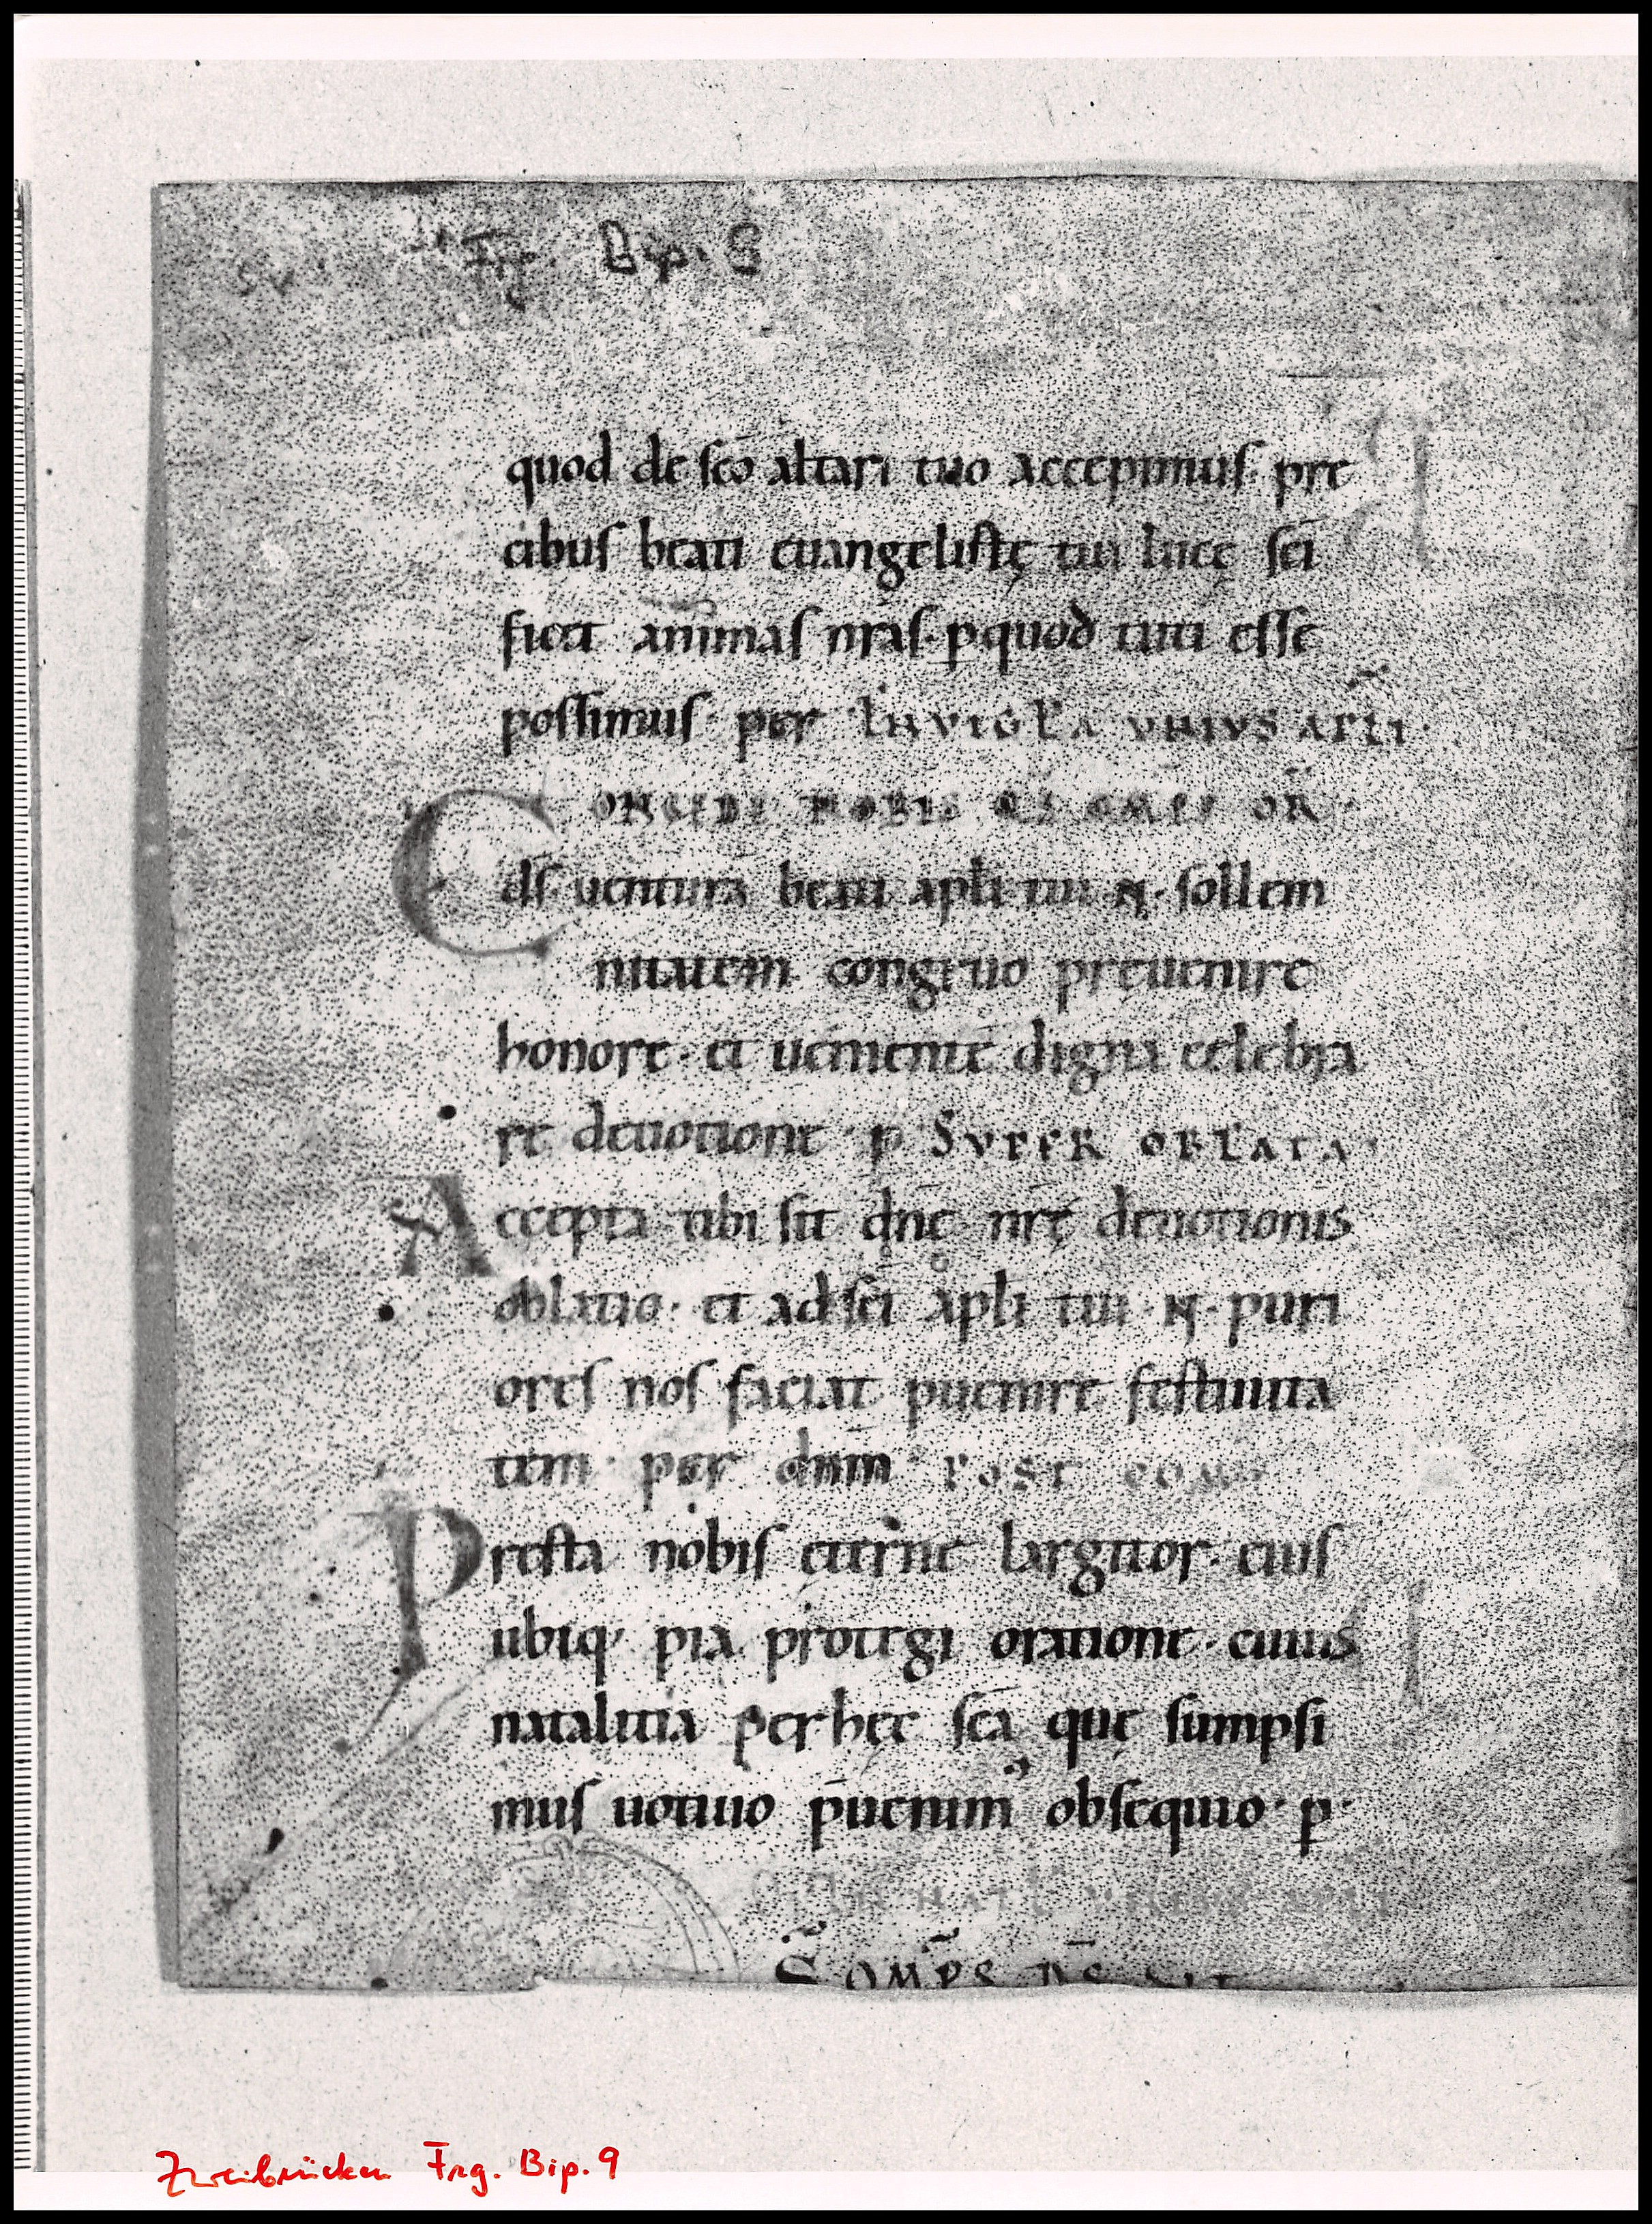 Frg. Bip. 9
quod de sc̄o altari tuo accepimus· pre
cibus beati euangelistę tui lucę sc̄i
ficet animas nr̄as· ꝑquod tuti esse
possimus· per IN VIGꝉA VNIVS APLI·
CONCEDE NOBIS QS OMPS
ds· uentura beati apl̄i tui N· sollem
nitatem congruo preuenire
honore· et uenientē digna celebra
re deuotione· p̄ SVPER OBLATA·
Accepta tibi sit dn̄e nr̄ę deuotionis
oblatio· et ad sc̄i apl̄i tui N· puri
ores nos faciat puenire festiuita
tem· per dnm̄ POST COM·
Presta nobis eterne largitor· eius
ubiq; pia protegi oratione· cuius
natalitia per hec sc̄a quę sumpsi
mus uotiuo p̄uenim᷒ obsequio· p̄·
IN NATꝉ VNIVS APLI
OMPS DS
Zweibrücken Frg. Bip. 9